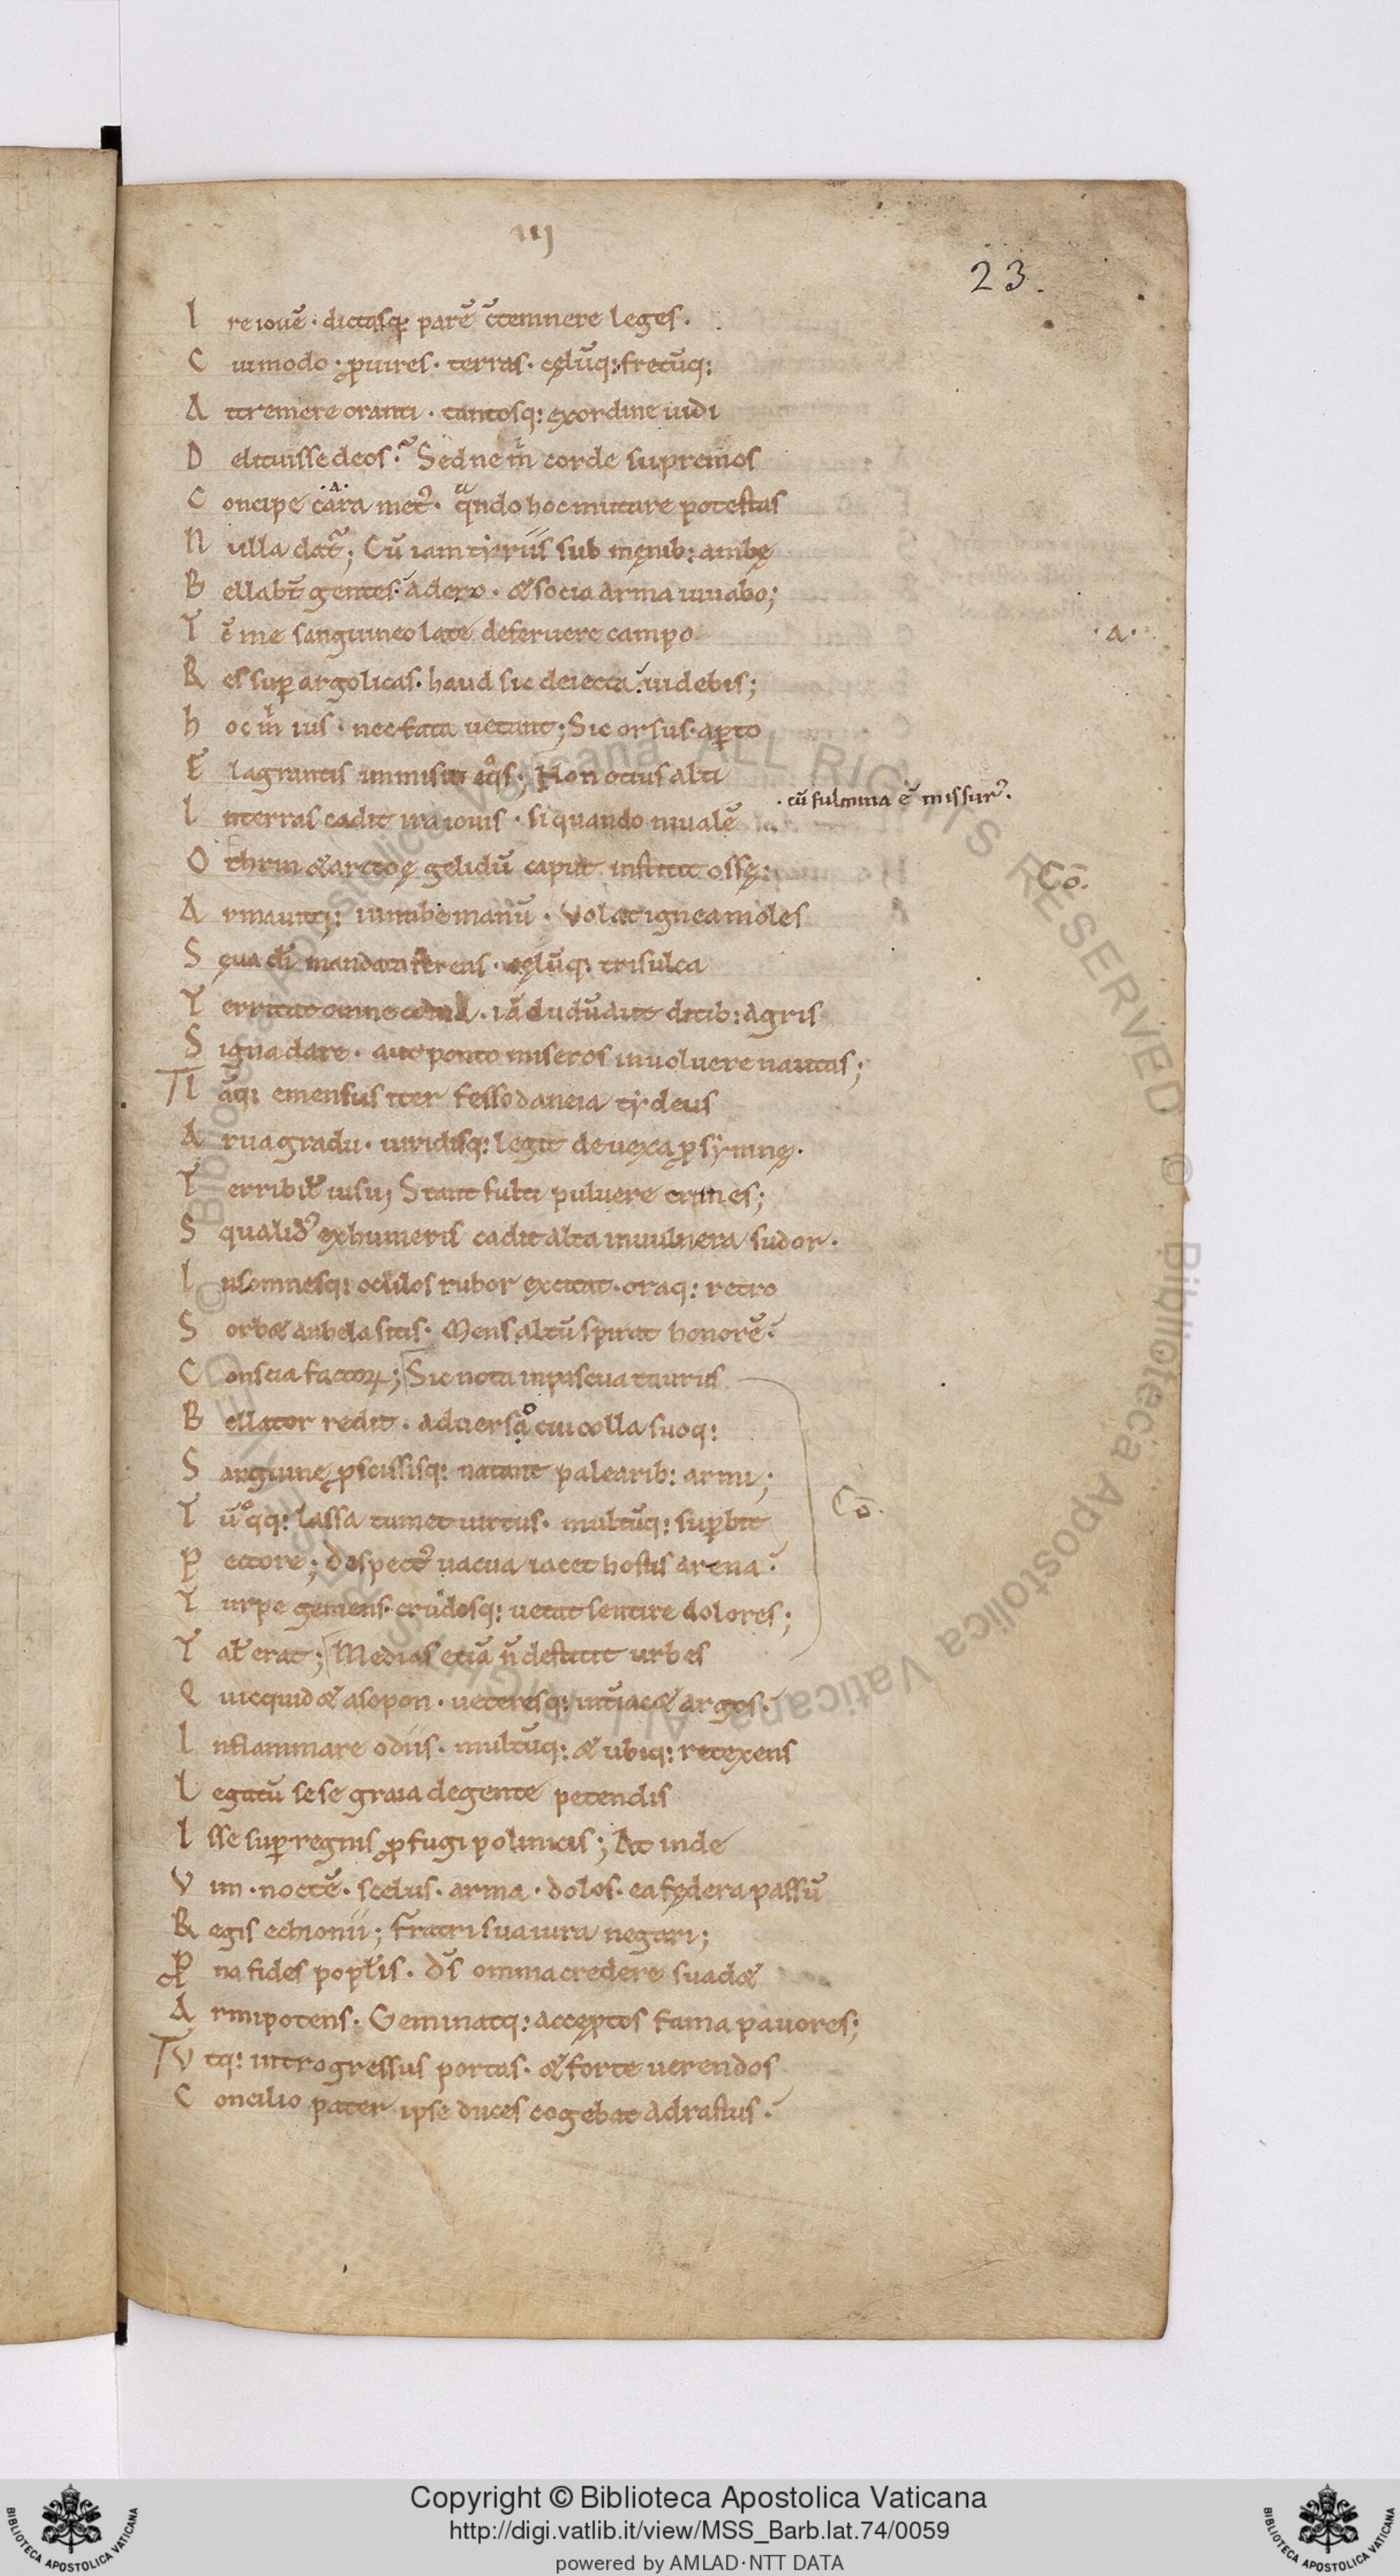 iij
23.
I re iouē · dictasq; parē c̄temnere leges ·
C ui modo · ꝓ uires · terras · cęlūq: fretūq:
A ttremere oranti · tantosq: ex ordine uidi
D elituisse deos · Sed ne m̄ corde supremos
C oncipe cara met᾽ · qando hoc mutare potestas
N ulla dat᷑; Cū iam tyriis sub męnib: ambę
B ellabt̄ gentes adero · & socia arma iuuabo;
T ē me sanguineo late deferuere campo
·a·
R es sup argolicas · haud sic deiecta uidebis;
h oc m̄ ius · nec fata uetant; Sic orsus · apto
F lagrantis immisit eqos · Non ocius alti
· cū fulmina ē missur᾽ ·
I nterras cadit ira iouis · si quando niualē
O thrin & arctoę gelidū caput institit ossę:
Cō.
A rmauitq: in nube manū · Volat ignea moles
S ęua di mandata ferens · cęlūq; trisulca
T erritat omne coma · iā dudū aut ditib: agris
S igna dare · aut ponto miseros inuoluere nautas;
I āq; emensus iter fesso danaeia tydeus
A rua gradu · uiridisq: legit deuexa ꝓsymnę ·
T erribił uisu; Stant fulti puluere crines;
S qualid᾽ ex humeris cadit alta in uulnera sudor ·
I nsomnesq; oculos rubor excitat · oraq: retro
S orb& anhela sitis · Mens altū spirat honorē ·
C onscia factoꝝ; Sic nota in pascua taurus
B ellator redit · aduersa cui colla suoq:
S anguine ꝓscissisq: natant palearib: armi;
Cō.
T ūqq: lassa tumet uirtus · multūq: supbit
P ectore; despect᾽ uacua iacet hostis arena ·
T urpe gemens crudosq: uetat sentire dolores;
T al̄ erat; Medias etiā n̄ destitit urbes
Q uicquid & asopon · ueteresq: int̄iac& argos ·
I nflammare odiis · multūq: & ubiq: retexens
L egatū sese graia de gente petendis
I sse sup regnis ꝓfugi polinicis; At inde
V im · noctē · scelus · arma · dolos · ea fędera passū
R egis echionii; fratri sua iura negari;
P na fides popłis · d̄s omnia credere suad&
A rmipotens · Geminatq: acceptos fama pauores;
V tq: introgressus portas · & forte uerendos
C oncilio pater ipse duces cogebat adrastus ·
Copyright © Biblioteca Apostolica Vaticana
http://digi.vatlib.it/view/MSS_Barb.lat.74/0059
powered by AMLAD·NTT DATA